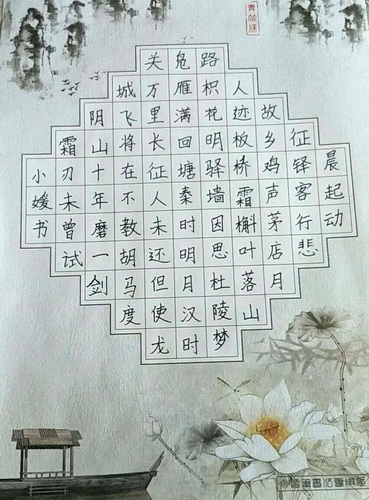 晨起动
征铎客行悲
故乡鸡声茅店月
人迹板桥霜槲叶落山
路枳花明驿墙因思杜陵梦
凫雁满回塘秦时明月汉时
关万里长征人未还但使龙
城飞将在不教胡马度
阴山十年磨一剑
霜刃未曾试
小媛书